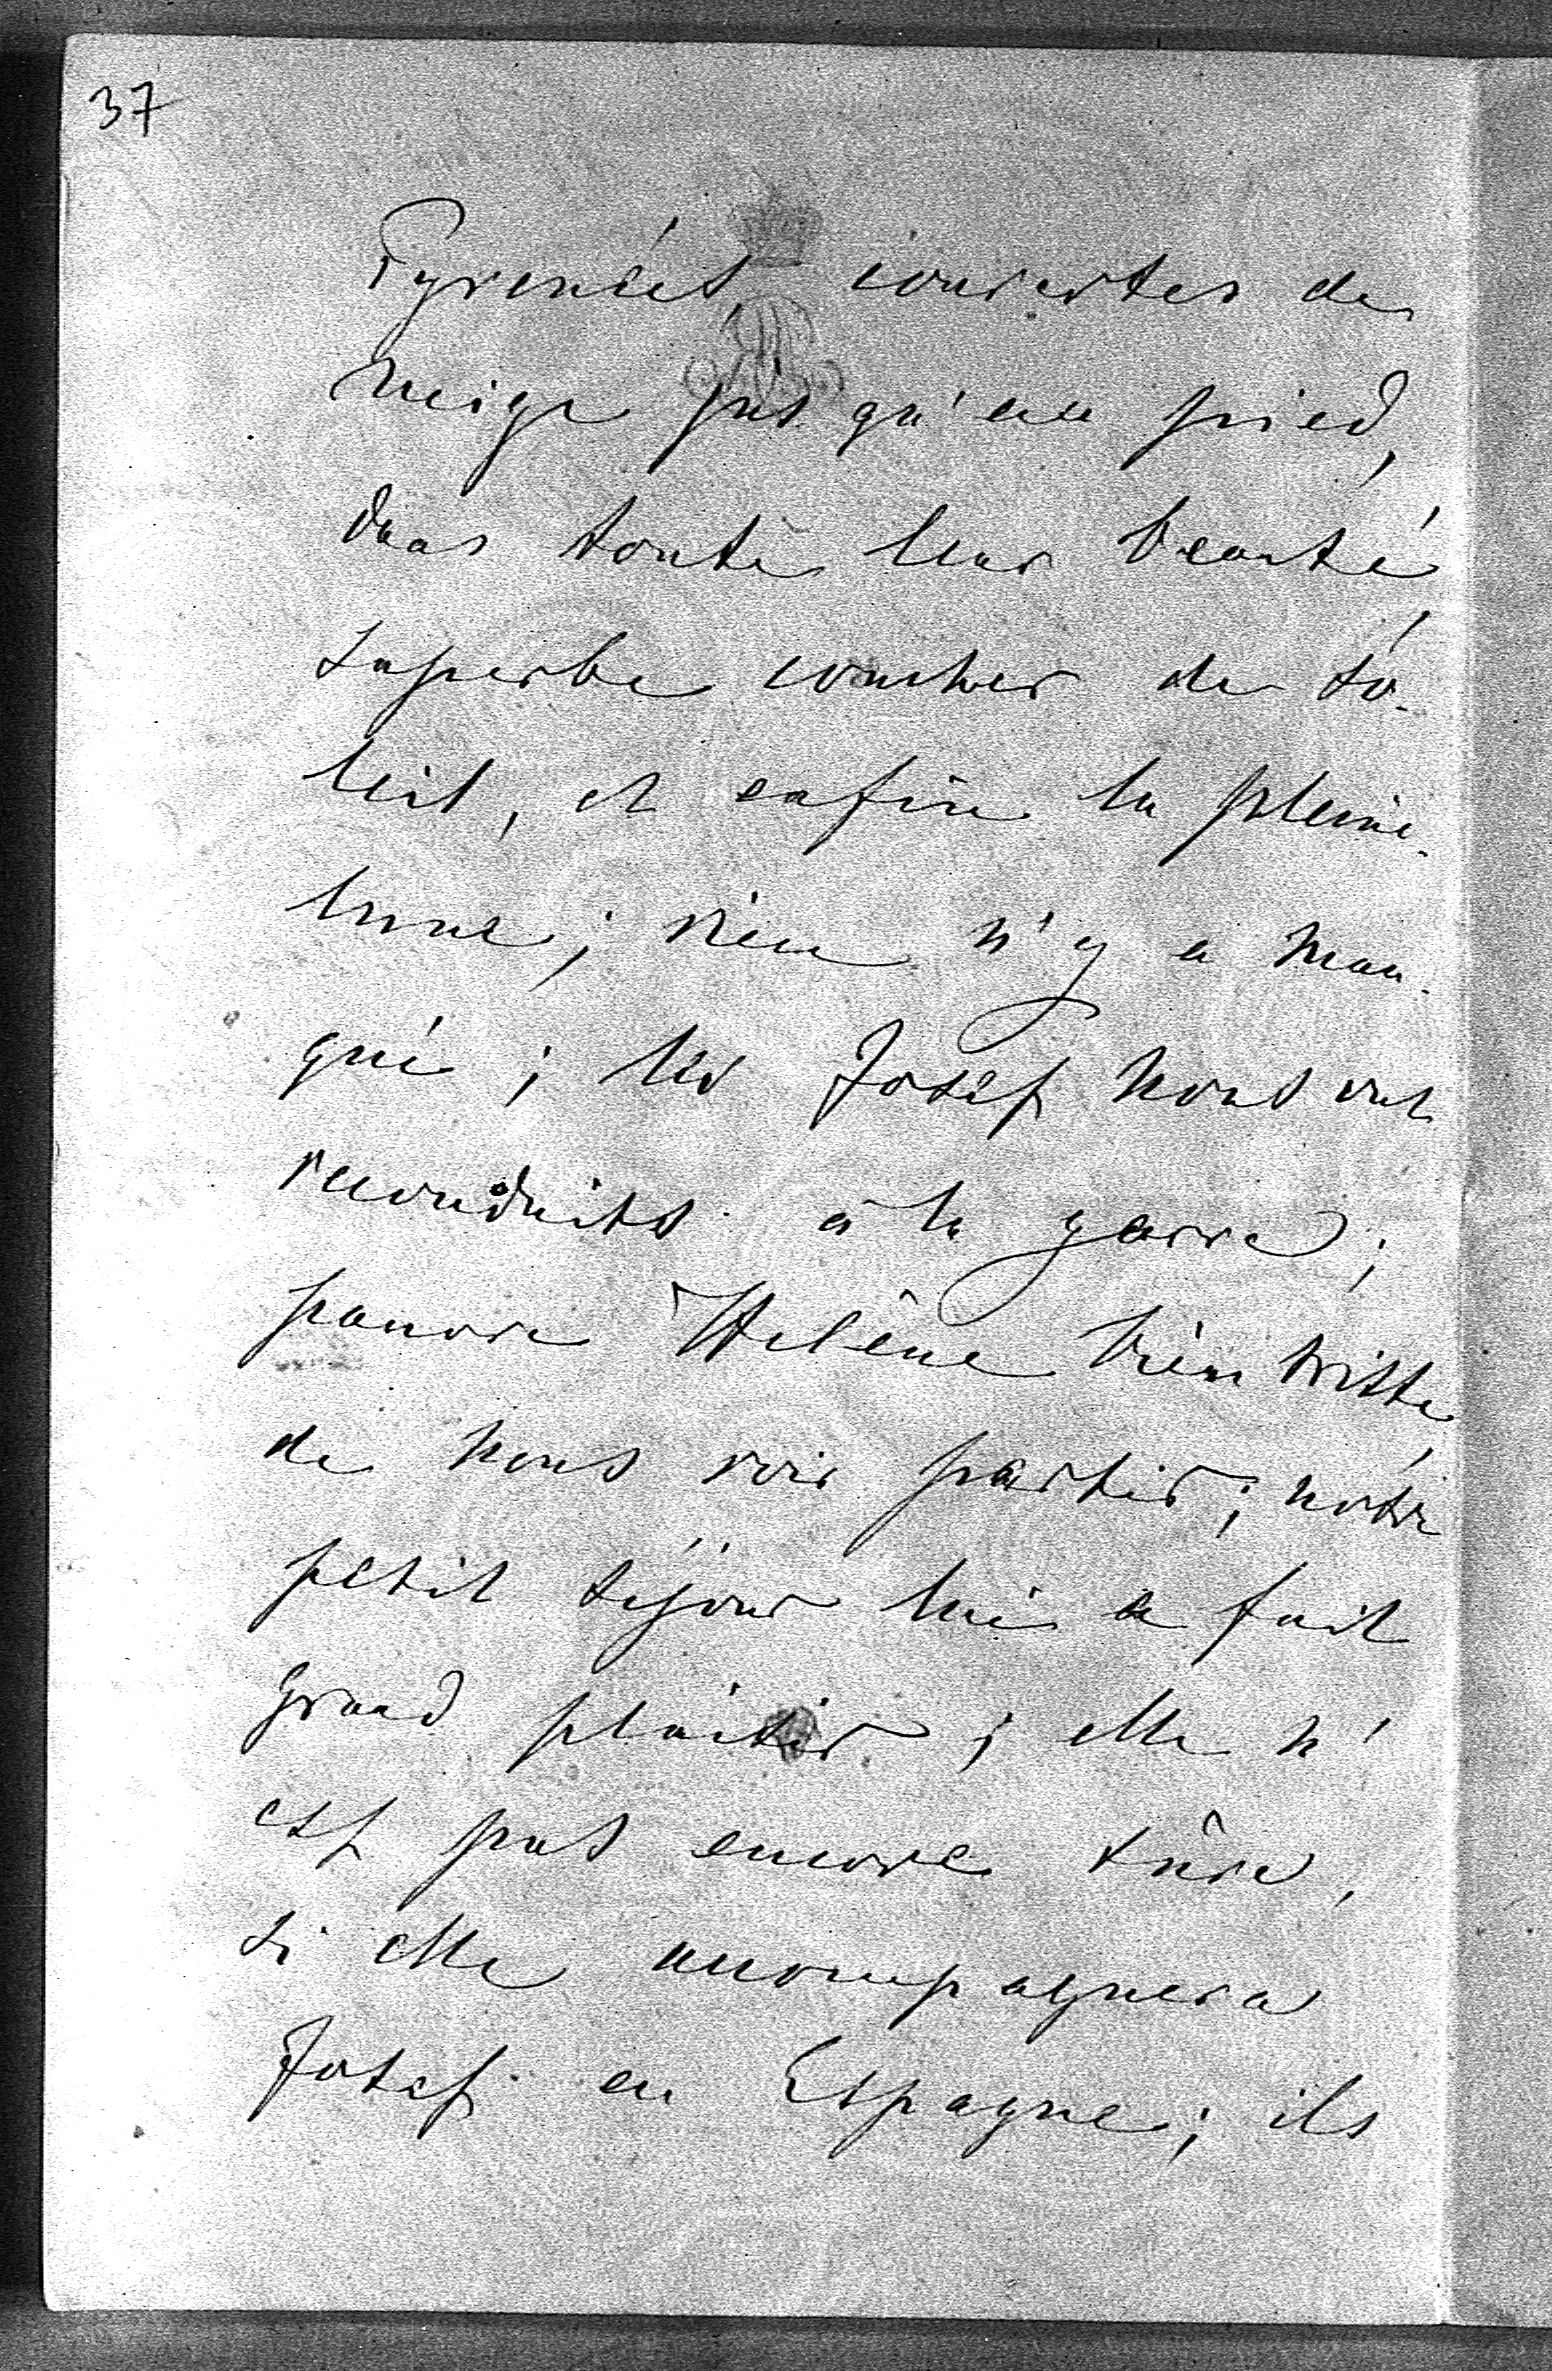 37
Pyrenées, couvertes de
neige jus qu'au pied,
dans toute leur beauté,
superbe coucher de so-
leil, et enfin la pleine-
lune; rien n'y a man-
qué; les Josef nous ont
reconduits à la garre;
pauvre Helène bien triste,
de nous voir partir; notre
petit séjour lui a fait
grand plaisir; elle n'
est pas encore sûre,
si elle accompagnera
Josef en Espagne; ils